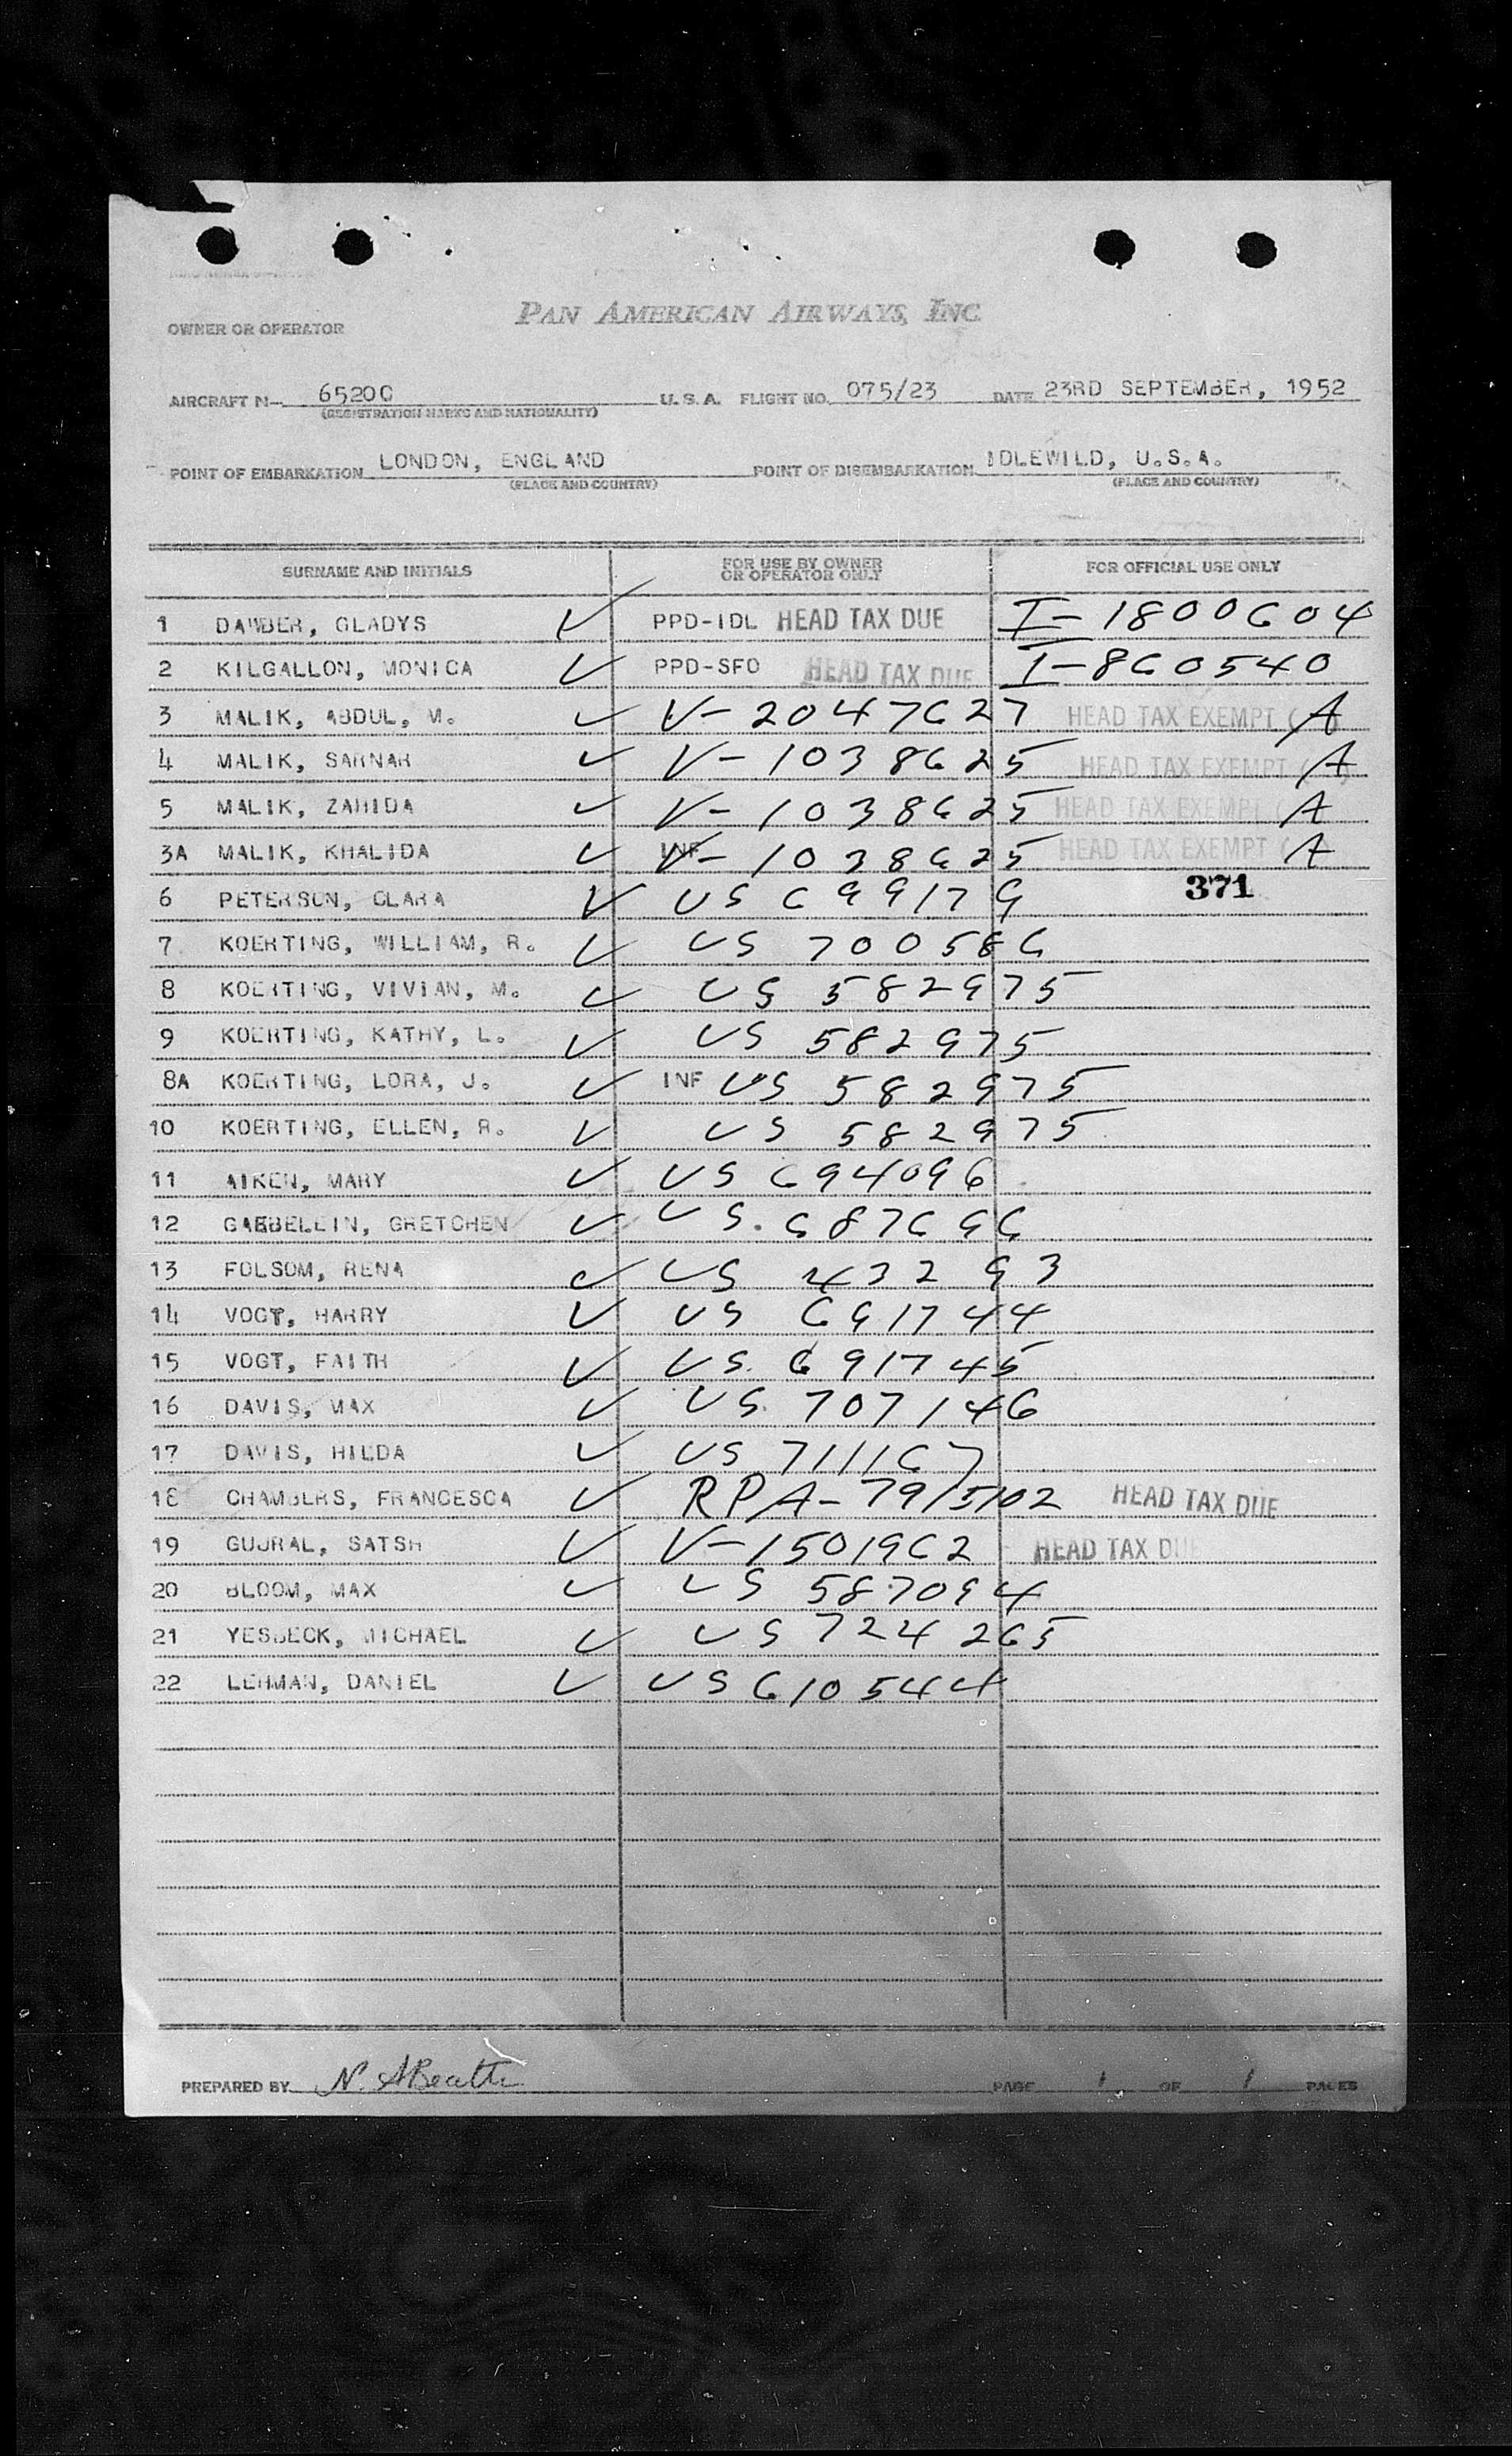 PAN AMERICAN AIRWAYS, INC.
OWNER OR OPERATOR
AIRCRAFT N— 6520C U.S.A. FLIGHT NO. 075/23 DATE 23RD SEPTEMBER, 1952
(REGISTRATION MARKS AND NATIONALITY)
POINT OF EMBARKATION LONDON, ENGLAND POINT OF DISEMBARKATION IDLEWILD, U.S.A.
(PLACE AND COUNTRY) (PLACE AND COUNTRY)
SURNAME AND INITIALS FOR USE BY OWNER OR OPERATOR ONLY FOR OFFICIAL USE ONLY
1 DAWBER, GLADYS ✓ PPD-IDL HEAD TAX DUE I-1800604
2 KILGALLON, MONICA ✓ PPD-SFO HEAD TAX DUE I-860540
3 MALIK, ABDUL, M. ✓ V-2047627 HEAD TAX EXEMPT (A)
4 MALIK, SARNAR ✓ V-1038625 HEAD TAX EXEMPT (A)
5 MALIK, ZAHIDA ✓ V-1038625 HEAD TAX EXEMPT (A
3A MALIK, KHALIDA ✓ INF V-1038625 HEAD TAX EXEMPT (A
6 PETERSON, CLARA ✓ US 699179 371
7 KOERTING, WILLIAM, R. ✓ US 700586
8 KOERTING, VIVIAN, M. ✓ US 582975
9 KOERTING, KATHY, L. ✓ US 582975
8A KOERTING, LORA, J. ✓ INF US 582975
10 KOERTING, ELLEN, R. ✓ US 582975
11 AIKEN, MARY ✓ US 694096
12 GAEBELEIN, GRETCHEN ✓ US. 687696
13 FOLSOM, RENA ✓ US 43293
14 VOGT, HARRY ✓ US 691744
15 VOGT, FAITH ✓ US. 691745
16 DAVIS, MAX ✓ US. 707146
17 DAVIS, HILDA ✓ US 711167
18 CHAMBERS, FRANCESCA ✓ RPA-79/5102 HEAD TAX DUE
19 GUJRAL, SATSH ✓ V-1501962 HEAD TAX DUE
20 BLOOM, MAX ✓ US 587094
21 YESBECK, MICHAEL ✓ US 724265
22 LEHMAN, DANIEL ✓ US 610544
PREPARED BY N. A Beatte PAGE 1 OF 1 PAGES